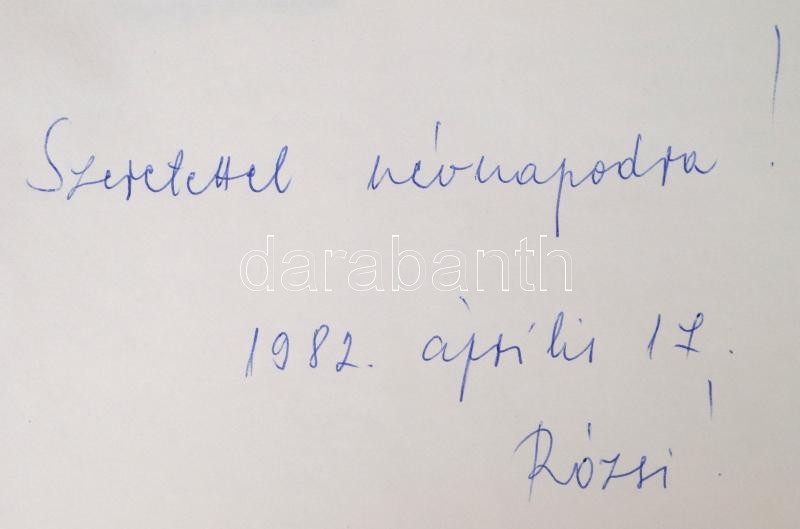 Szeretettel névnapodra!
darabanth
1982. április 17.
Rózsi!